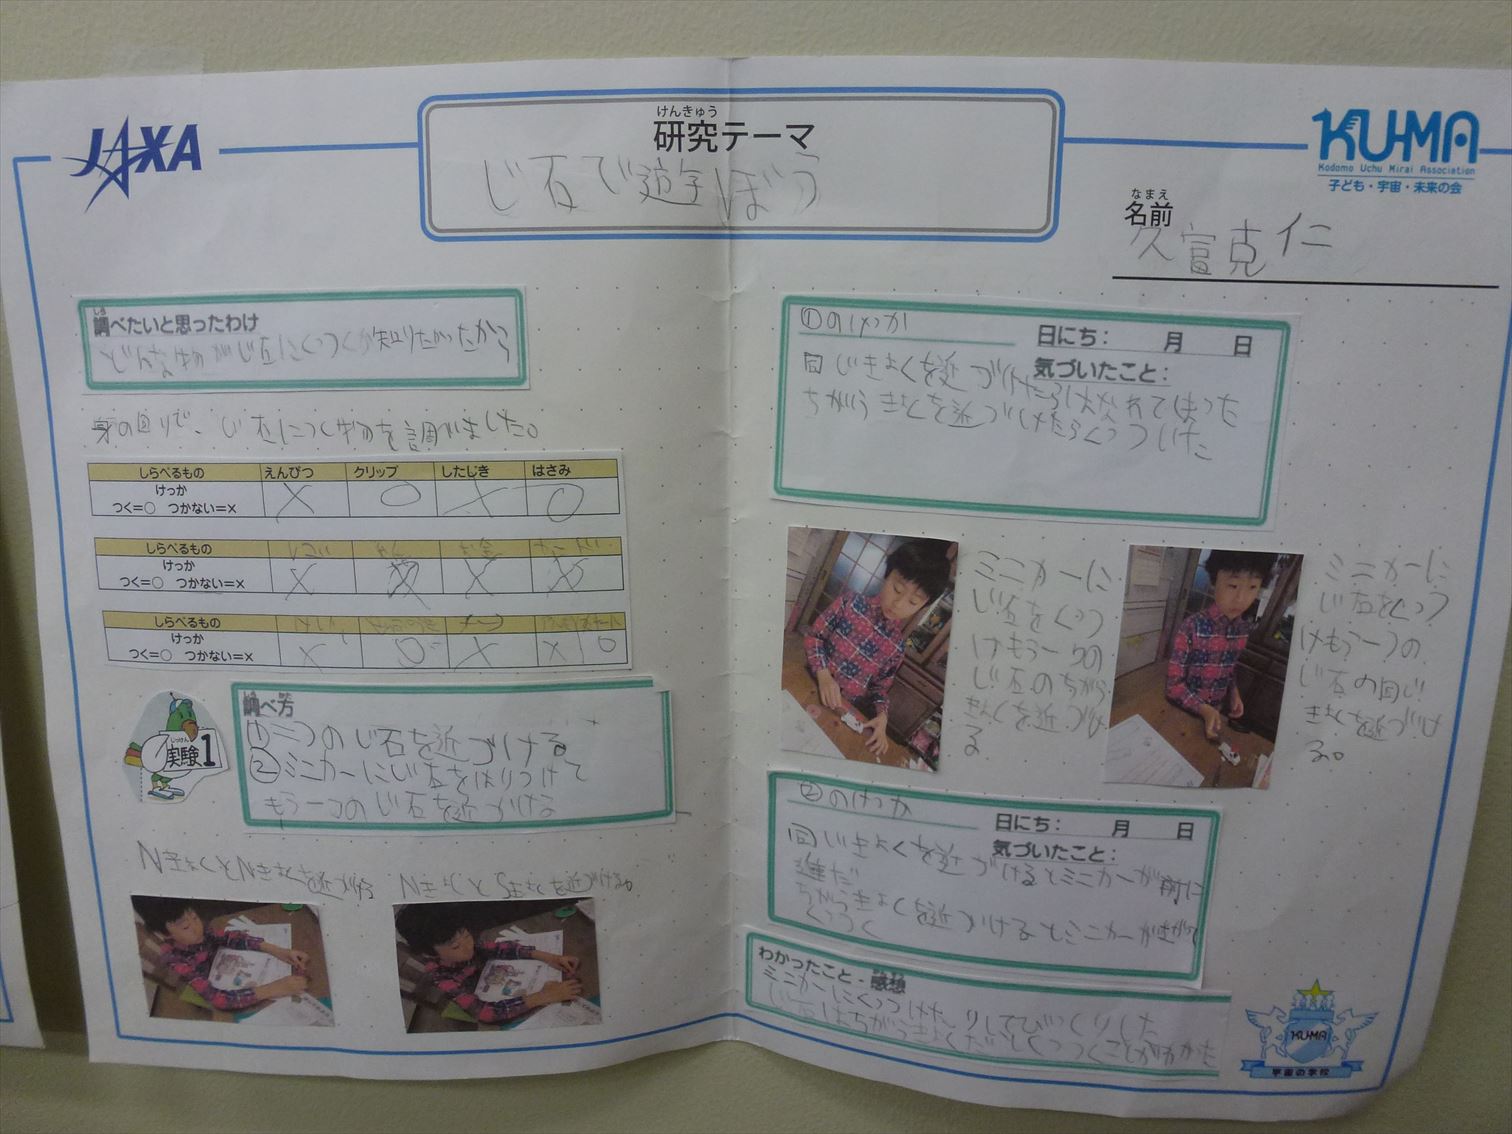 JAXA
けんきゅう
研究テーマ
じ石で遊ぼう
KU-MA
Kodomo Uchu Mirai Association
子ども・宇宙・未来の会
なまえ
名前
久富克仁
しら
調べたいと思ったわけ
どんな物がじ石にくっつくか知りたかったから
身の回りで、じ石につく物を調べました。
しらべるもの えんぴつ クリップ したじき はさみ
けっか
つく=○ つかない=× × ○ × ○
しらべるもの
けっか
つく=○ つかない=× × × × ×
しらべるもの
けっか
つく=○ つかない=× × ○ × × ○
じっけん
実験1
しら かた
調べ方
①二つのじ石を近づける
②ミニカーにじ石をはりつけて
もう一つのじ石を近づける
NきょくとNきょくを近づける
NきょくとSきょくを近づける。
①のけっか
日にち: 月 日
気づいたこと:
同じきょくを近づけたらはなれてしまった
ちがうきょくを近づけたらくっついた
ミニカーに
じ石をくっつ
けもう一つの
じ石のちがう
きょくを近づけ
る
ミニカーに
じ石をくっつ
けもう一つの
じ石の同じ
きょくを近づけ
る。
②のけっか
日にち: 月 日
気づいたこと:
同じきょくを近づけるとミニカーが前に
進だ
ちがうきょくを近づけるとミニカーが
くっつく
わかったこと・感想
ミニカーにくっつけたりしてびっくりした
じ石はちがうきょくだとくっつくことがわかた
KU-MA
宇宙の学校